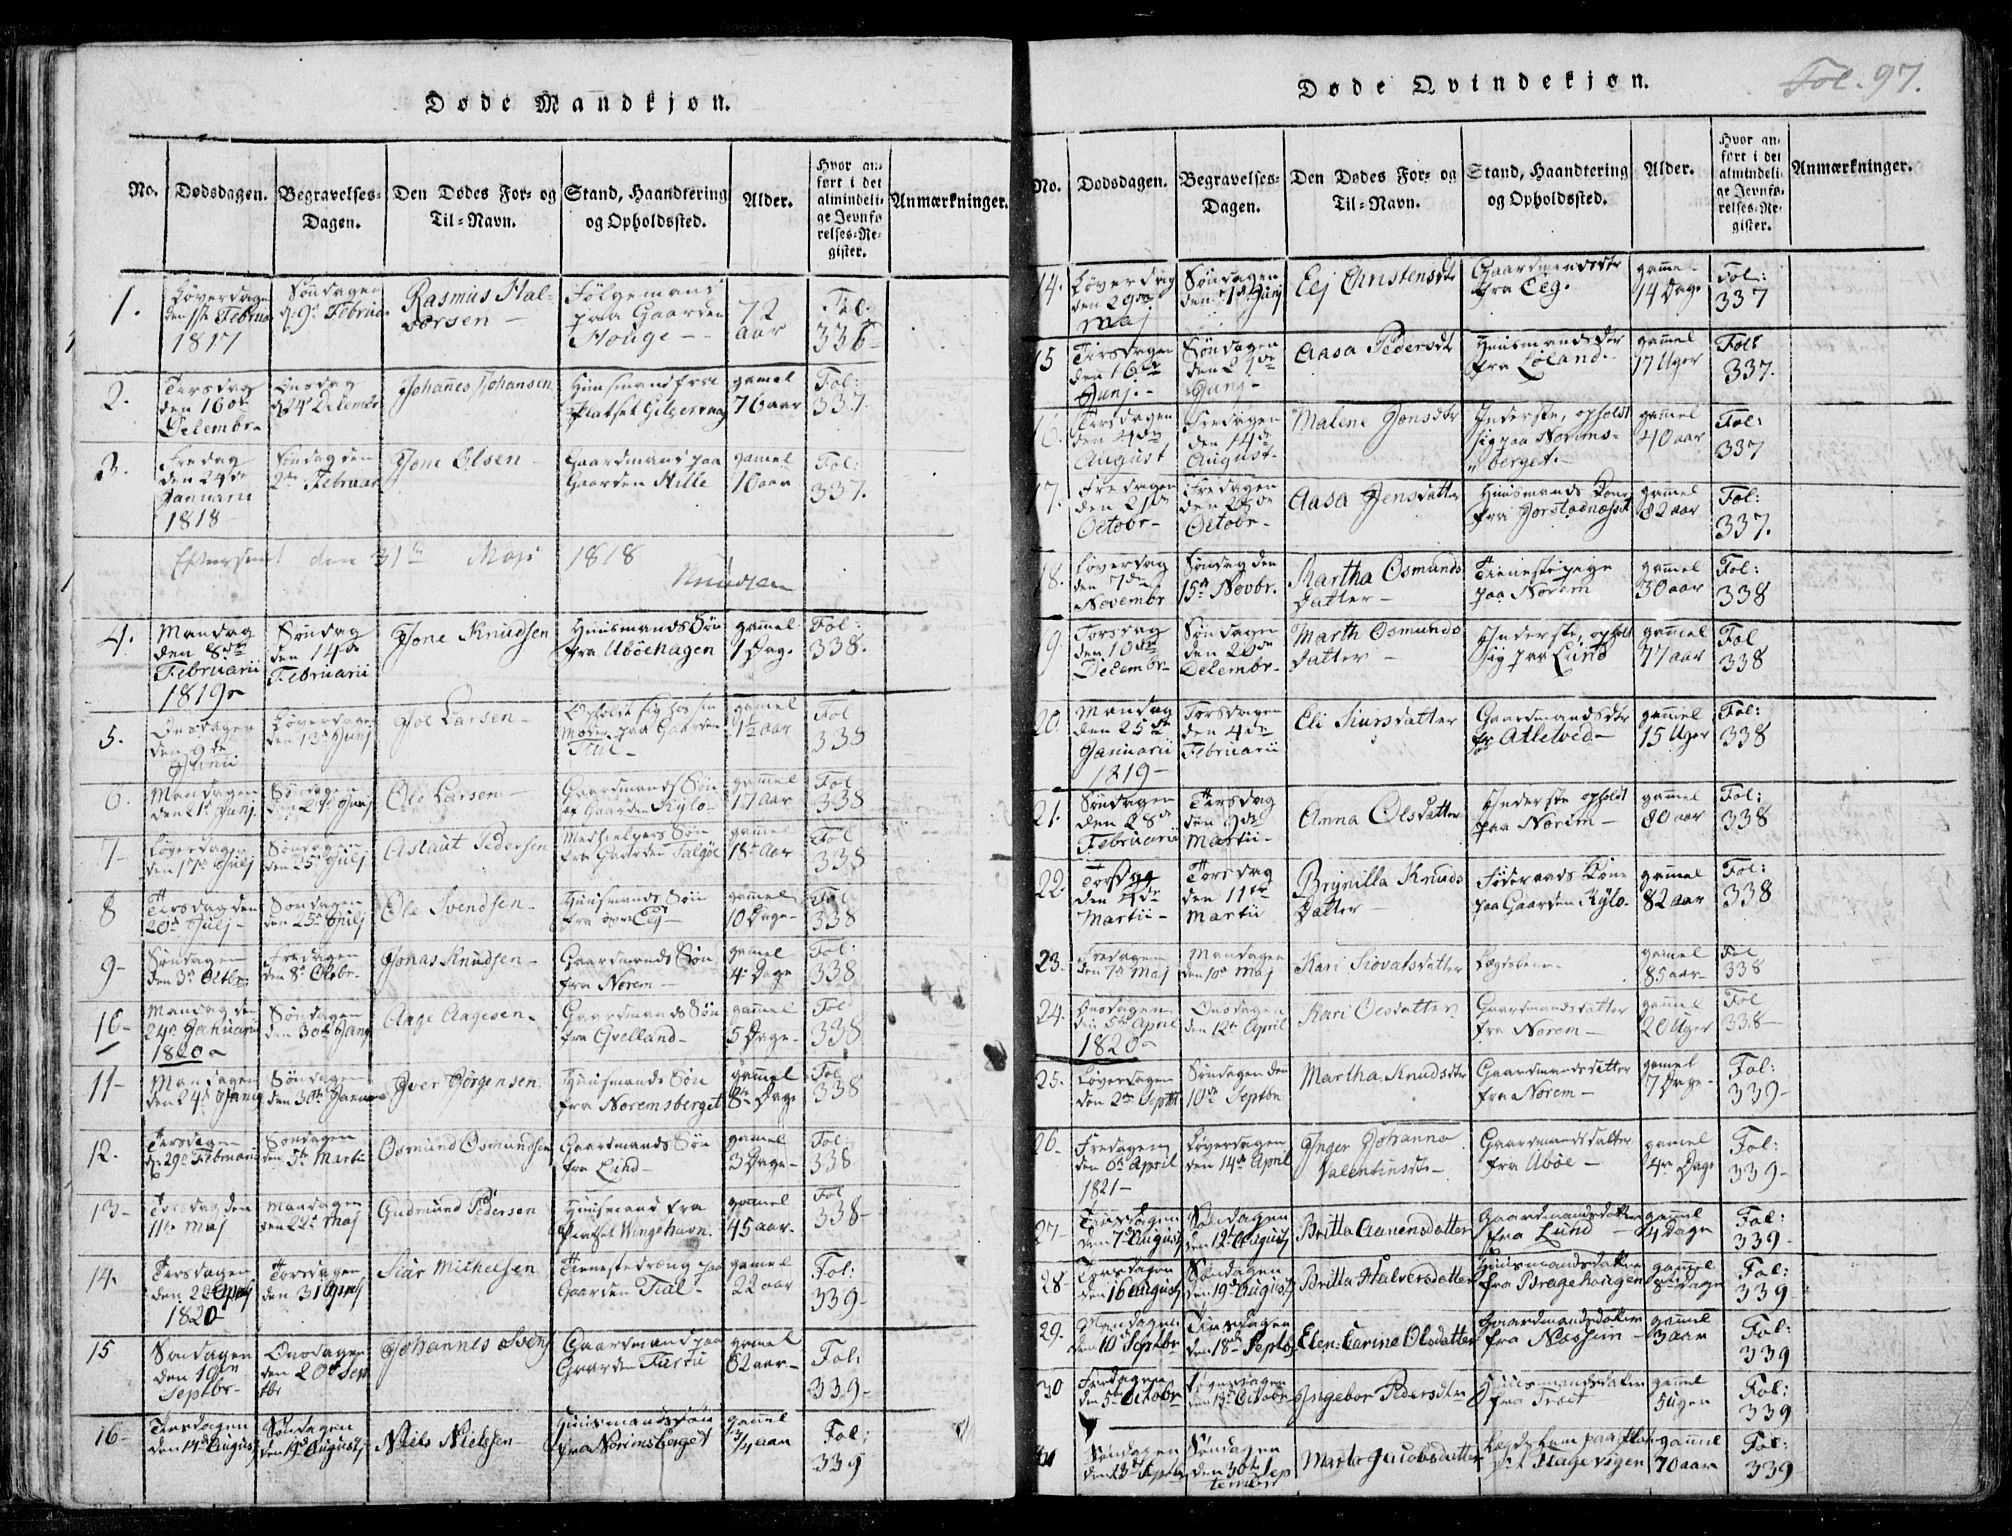 Døde Mandkjøn.
No. Dødsdagen. Begravelses-Dagen. Den Dødes For- og Til-Navn. Stand, Haandtering og Opholdssted. Alder. Hvor anført i det almindelige Jevnførelses-Register. Anmærkninger.
1. Løverdagen den 1ste Februar 1817 Søndagen d. 9de Februar Rasmus Halvorsen Følgemand paa Gaarden Houge 72 aar Fol: 336
2. Tirsdag den 16de Decembr. Onsdag d. 24de Decembr Johanes Johansen Huusmand fra Pladset gamel 76 aar Fol: 337.
3. Fredag den 24de Januarii 1818 Søndag den 2den Februar Jone Olsen Gaardmand paa Gaarden Hille gamel Fol: 337.
den 31te 1818
Knudsen
4. Mandag den 8de Februarii 1819 Søndag den 14de Februarii Jone Knudsen Huusmands Søn fra Ubøehagen gamel 1 Dag. Fol: 338.
5. Onsdagen den 9de Junii Løverdagen den 13de Junj Joe Larsen Opholdt sig hos sin Moder paa Gaarden Tual gamel 1½ aar Fol 338
6. Mandagen den 21de Junj. Søndagen Junj Ole Larsen Gaardmands Søn af Gaarden Kylo gamel 17 Aar Fol 338
7 Løverdagen den 17de Julj Søndagen den 25de Julj Aslaut Pedersen Medhielpers Søn fra Gaarden Talgøe gamel 18 Aar Fol 338
8 Tirsdag den 20de Julj Søndagen den 25de Julj Ole Svendsen Huusmands Søn fra øvre Eig gammel 10 Dage Fol 338
9 Søndagen den 3de Octbr. Fredagen den 8de Octbr. Jonas Knudsen Gaardmands Søn fra Norem gamel 4 Dage Fol: 338
10 Mandag den 24de Januarii 1820 Søndagen den 30te Janu Aage Aagesen Gaardmands Søn fra Qvelland gammel 5 Dage Fol 338
11 Mandagen den 24de Janu Søndagen den 30te Januar Jver Jörgensen Huusmands Søn fra Noremsberget gammel 8te Dage Fol 338
12. Tirsdagen d. 29de Februarii Søndagen den 5te Martii Osmund Osmundsen Gaardmands Søn fra Lund gamel 3 Dage Fol: 338
13 Torsdag den 11te Maj Mandagen den 22de Maj Gudmund Pedersen Huusmand fra Pladset Wingehavn. gamel 45 aar Fol 338
14. Torsdagen Siur Michelsen Tienestedreng paa Gaarden Tual gamel 22 aar Fol: 339
1820
15 Søndagen Septbr. Onsdagen den 20de Septbr Johannes Svens Gaardmand paa Gaarden gamel 62 aar Fol: 339
16 Tirsdagen den 14de August Søndagen den 19de August Niels Nielsen Huusmandssøn fra Norimsberget gammel ¾ aar Fol: 339
Døde Qvindekjøn.
Fol. 97.
No. Dødsdagen. Begravelses-Dagen. Den Dødes For- og Til-Navn. Stand, Haandtering og Opholdssted. Alder. Hvor anført i det almindelige Jevnførelses-Register. Anmærkninger.
14. Løverdag den 29de Maj Søndagen den Junj Elj Christensdtr Gaardmandsdtr fra Eeg. gammel 14 Dage Fol: 337
15 Tirsdagen den 16de Junj. Søndagen den 21de Junj Aasa Pedersdtr Huusmandsdtr fra Løland. gammel 17 Uger Fol: 337.
16. Tirsdagen den 4de August Fredagen den 14de August Malene Jonsdtr Inderste, opholdt sig paa Norimsberget. gammel 40 aar Fol: 337
17. Fredagen Octobr Fredagen Octobr. Aasa Jensdatter Huusmands Kone fra Jorstadnæsset gamel 82 aar Fol: 337.
18. Løverdag den 7de Novembr Søndag den 15de Novbr. Martha Osmunds Datter Tienestepige paa Norem gammel 30 aar Fol: 338
19. Torsdag den 10de Decembr Søndagen den 20de Decembr. Marth Osmunds datter Inderste, opholdt sig paa Lund gammel 77 aar Fol 338
20. Mandag den 25de Januarii 1819 Torsdagen den 4de Februarii Eli Siursdatter Gaardmandsdtr fra Atletved gammel 15 Uger Fol: 338
21. Søndagen den 28de Februarii Tirsdag den 9de Martii Anna Olsdatter Inderste opholdt paa Norem gammel 80 aar Fol: 338
22. Torsdag den 4de Martii Torsdag den 11te Martii Brynilla Knuds Datter Føderaads Kone paa Gaarden Kylo. gammel 82 aar Fol: 338
23. Fredagen den 7de Maj Mandagen den 10de Maj Kari Siovatsdatter gamel 85 aar Fol 338
24. Onsdagen den 5te April 1820 Onsdagen den 12te April Kari Olsdatter Gaardmandsdatter fra Norem gammel 20 Uger Fol 338
25. Løverdagen den 2den Septbr Søndagen den 10de Septbr Martha Knudsdtr Gaardmandsdatter fra Norem gamel 7 Dage Fol: 339
26. Fredagen den 6te April 1821 Løverdagen den 14de April Inger Johanna Valentinsdtr Gaardmandsdatter fra Ubøe gamel 4re Dage Fol: 339
27 Tirsdagen den 7de August Søndagen den 12te August Britta Aanensdatter Gaardmandsdatter fra Lund gammel 4 Dage Fol: 339
28 Torsdagen den 16 August Søndagen den 19de August Britta Halversdatter Huusmandsdatter fra Bragehougen gammel 8te Dage Fol: 339
29. Mandagen den 10de Septbr Tirsdagen den 18de Septbr Elen Carine Olsdatter Gaardmandsdatter fra Nassum gamel 3 aar Fol: 339
30 Fredagen den 5te Octobr Løverdagen den 13de Octobr Ingebor Pedersdtr Huusmandsdatter fra Troet gamel 5 Uger Fol: 339
Søndagen den 23de Septbr Søndagen den 30te September Marta Jacobsdatter Hagevigen gammel 70 aar Fol: 339